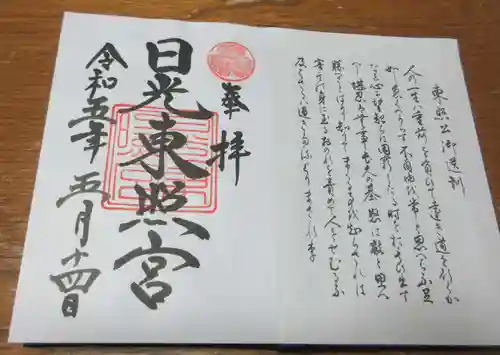 東照公御遺訓
人の一生は重荷を負ひて遠き道を行くが
如し急ぐべからず不自由を常と思へば不足
なし心に望起らば困窮したる時を思ひ出す
べし堪忍は無事長久の基怒は敵と思へ
勝つことばかり知りてまくることを知らざれば
害其の身に至るおのれを責めて人をせむるな
及ばざるは過ぎたるよりまされり
奉拝
日光東照宮
令和五年五月十四日